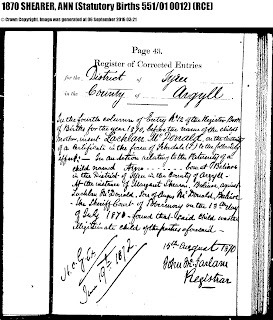 1870 SHEARER, ANN (Statutory Births 551/01 0012) (RCE)
© Crown Copyright. Image was generated at 06 September 2016 03:21
Page 43.
Register of Corrected Entries
for the District of
in the County of Argyll
In the fourth column of Entry No 12 of the Register Book
of Births for the year 1870, before the name of the child's
mother, insert Lachlan McDonald, on the authority
of a Certificate in the form of Schedule (F) to the following
effect:- In an action relating to the Paternity of a
child named born at
in the District of in the County of Argyll -
At the instance of Margaret Shearer, against
Lachlan McDonald, son of McDonald,
the Sheriff Court of on the 13th day
of July 1870 found that said child was the
illegitimate child of the parties aforesaid -
15th August 1870
John McFarlane
Registrar
Jan 19th 1872